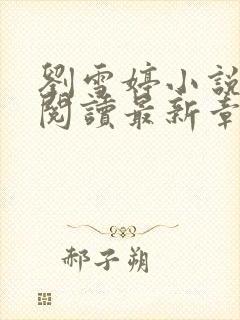 劉雪婷小說
閱讀最新章
郝子朔